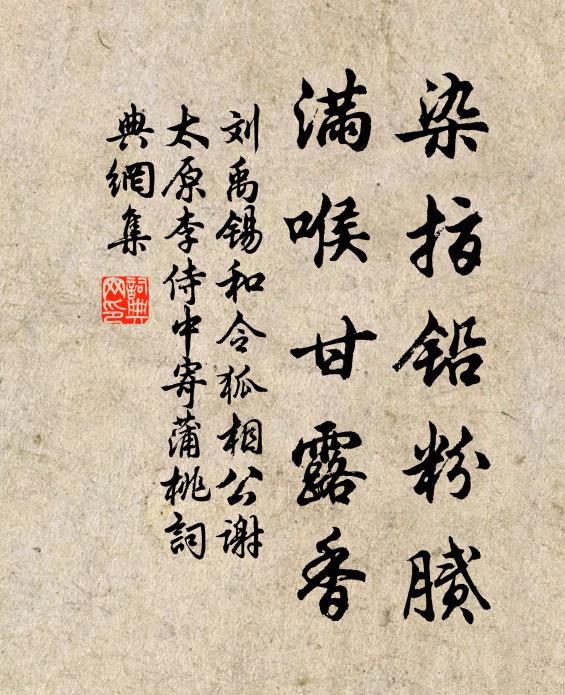 染指铅粉腻
满喉甘露香
刘禹锡和令狐相公谢
太原李侍中寄蒲桃詞
典網集
詞典
网印